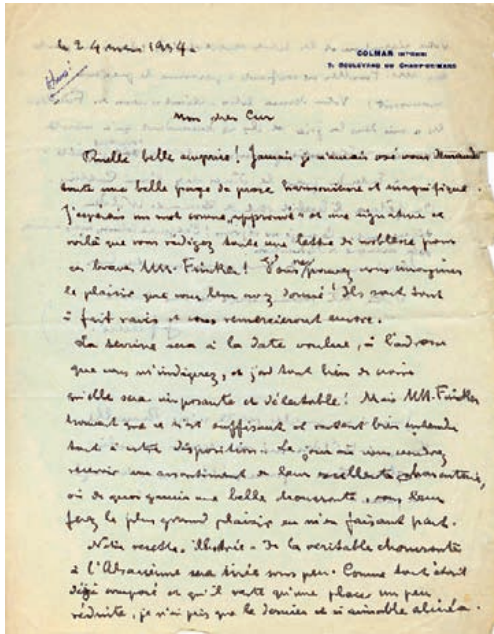 le 24 mars 1954.
COLMAR (HT-RHIN)
7, BOULEVARD DU CHAMP-DE-MARS
Mon cher Cur
Quelle belle surprise ! Jamais je n'aurais osé vous demander
toute une belle page de prose savoureuse et magnifique.
J'espérais un mot comme "approuvé" et une signature et
voilà que vous rédigez toute une lettre de noblesse pour
ces braves MM. Finker ! Vous ne pouvez vous imaginer
le plaisir que vous leur avez donné ! Ils sont tout
à fait ravis et vous remercieront encore.
La terrine sera à la date voulue, à l'adresse
que vous m'indiquez, et j'ai tout lieu de croire
qu'elle sera imposante et délectable ! Mais MM. Finker
trouvent que ce n'est suffisant et restent bien entendu
tout à votre disposition. Le jour où vous voudrez
recevoir un assortiment de leur excellente charcuterie,
où de quoi garnir une belle choucroute, vous leur
ferez le plus grand plaisir en m'en faisant part.
Notre recette illustrée de la véritable choucroute
à l'Alsacienne sera tirée sous peu. Comme tout était
déjà composé et qu'il reste qu'une place un peu
réduite, je n'ai pris que le dernier et si aimable alinéa.